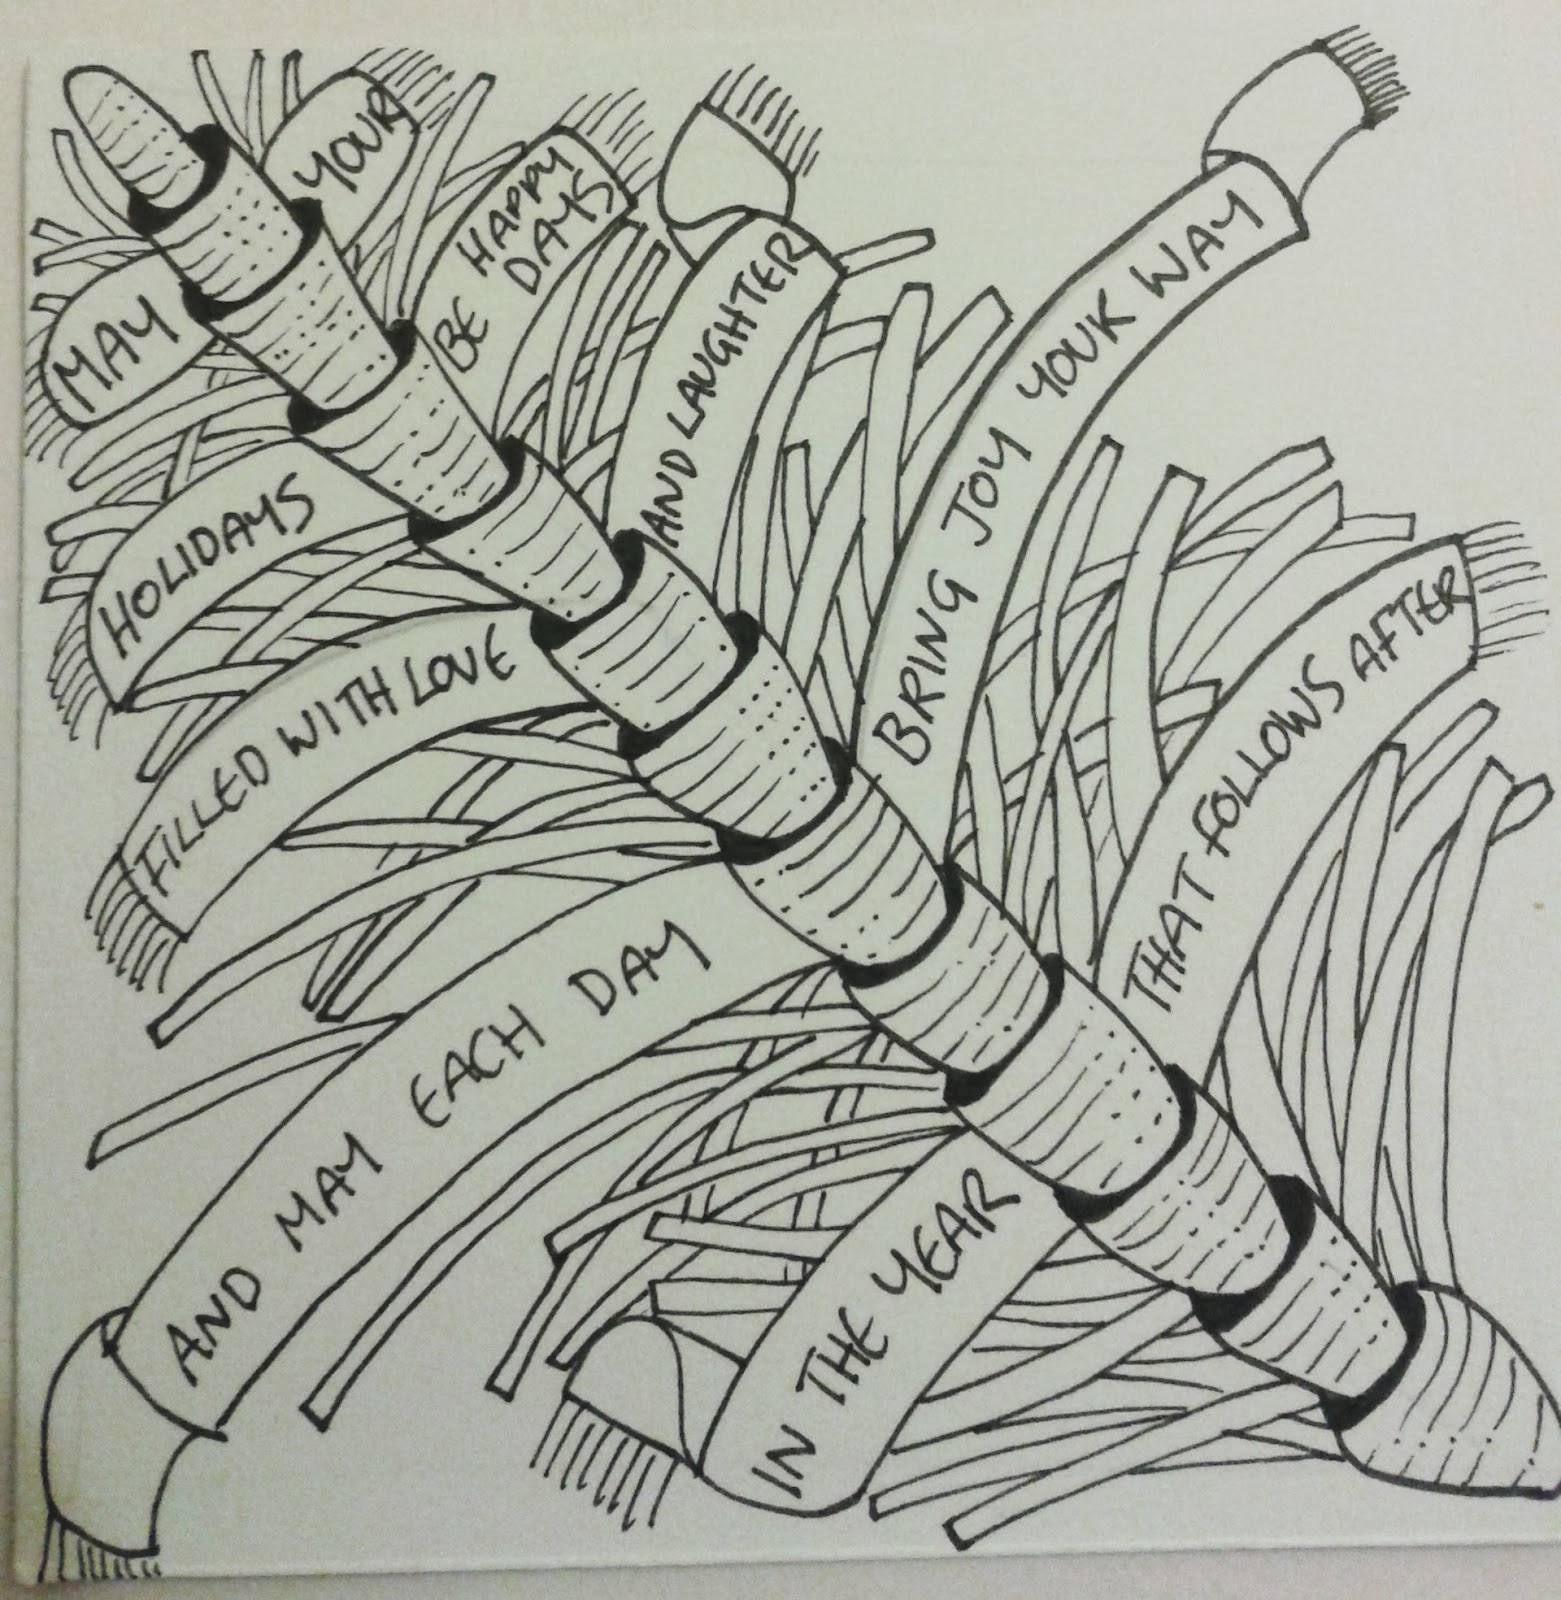 MAY
YOUR
HOLIDAYS
BE HAPPY
DAYS
FILLED WITH LOVE
AND LAUGHTER
AND MAY EACH DAY
BRING JOY YOUR WAY
IN THE YEAR
THAT FOLLOWS AFTER